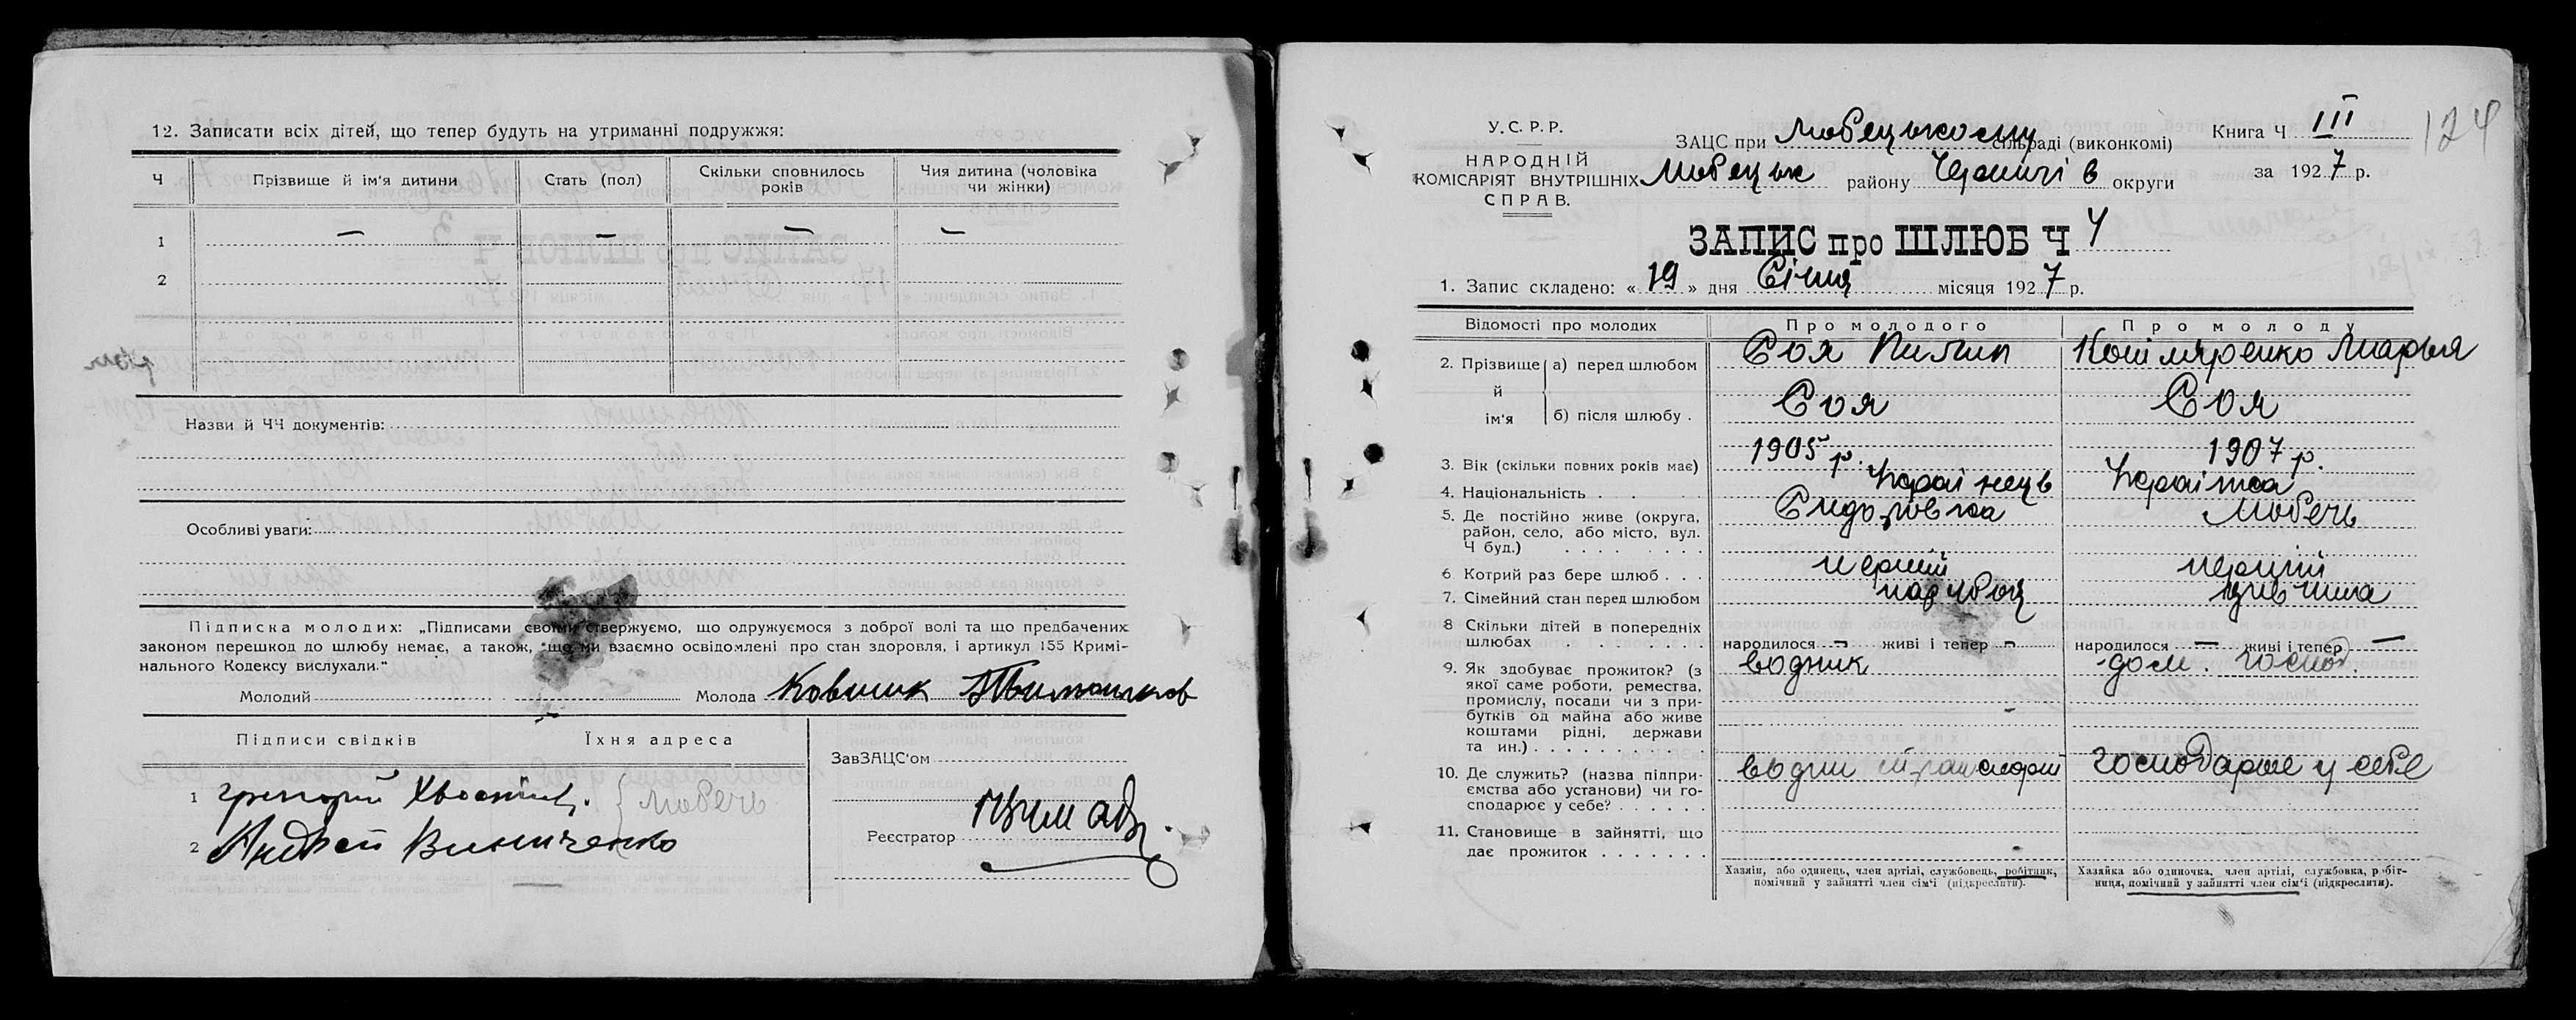 12. Записати всіх дітей, що тепер будуть на утриманні подружжя:
Ч Прізвище й ім'я дитини Стать (пол) Скільки сповнилось років Чия дитина (чоловіка чи жінки)
1 — — — —
2
Назви й ЧЧ документів:
Особливі уваги:
Підписка молодих: „Підписами своїми ствержуємо, що одружуємося з доброї волі та що предбачених
законом перешкод до шлюбу немає, а також, що ми взаємно освідомлені про стан здоровля, і артикул 155 Кримі-
нального Кодексу вислухали.“
Молодий Молода Ковшик
Підписи свідків Їхня адреса
1 Григорій
Любечь
2 Андрей Винниченко
ЗавЗАЦС'ом
Реєстратор
У.С.Р.Р.
НАРОДНІЙ
КОМІСАРІЯТ ВНУТРІШНІХ
СПРАВ.
ЗАЦС при Любецькому сільраді (виконкомі)
Любецьк району Чернигів округи
Книга Ч III
за 1927 р.
174
ЗАПИС про ШЛЮБ Ч 4
1. Запис складено: « 19 » дня Січня місяця 1927 р.
Відомості про молодих Про молодого Про молоду
2. Прізвище й ім'я а) перед шлюбом Соя Пилип Кошмяренко Марья
б) після шлюбу . Соя Соя
3. Вік (скільки повних років має) 1905 р. 1907 р.
4. Національність . . . Українець Українка
5. Де постійно живе (округа, Сидоровка Любечь
район, село, або місто, вул.
Ч буд.) . . . . .
6. Котрий раз бере шлюб . . . перший перший
7. Сімейний стан перед шлюбом парубок дівчина
8 Скільки дітей в попередніх
шлюбах . . . . . народилося — живі і тепер — народилося — живі і тепер —
9. Як здобуває прожиток? (з водник дом. господ.
якої саме роботи, ремества,
промислу, посади чи з при-
бутків од майна або живе
коштами рідні, держави
та ин.) . . . . . . . . .
10. Де служить? (назва підпри- водний господарює у себе
ємства або установи) чи го-
сподарює у себе? . . . . .
11. Становище в зайнятті, що
дає прожиток . . . . . . .
Хазяїн, або одинець, член артілі, службовець, робітник,
помічний у зайнятті член сім'ї (підкреслити).
Хазяйка або одиночка, член артілі, службовка, робіт-
ниця, помічний у зайнятті член сім'ї (підкреслити).